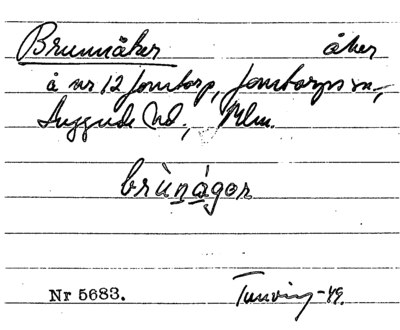 Brunnåker åker
å nr 12 Jonstorp, Jonstorps sn,
Luggude hd, Mlm.
brùnágər
Nr 5683. Tunving -49.